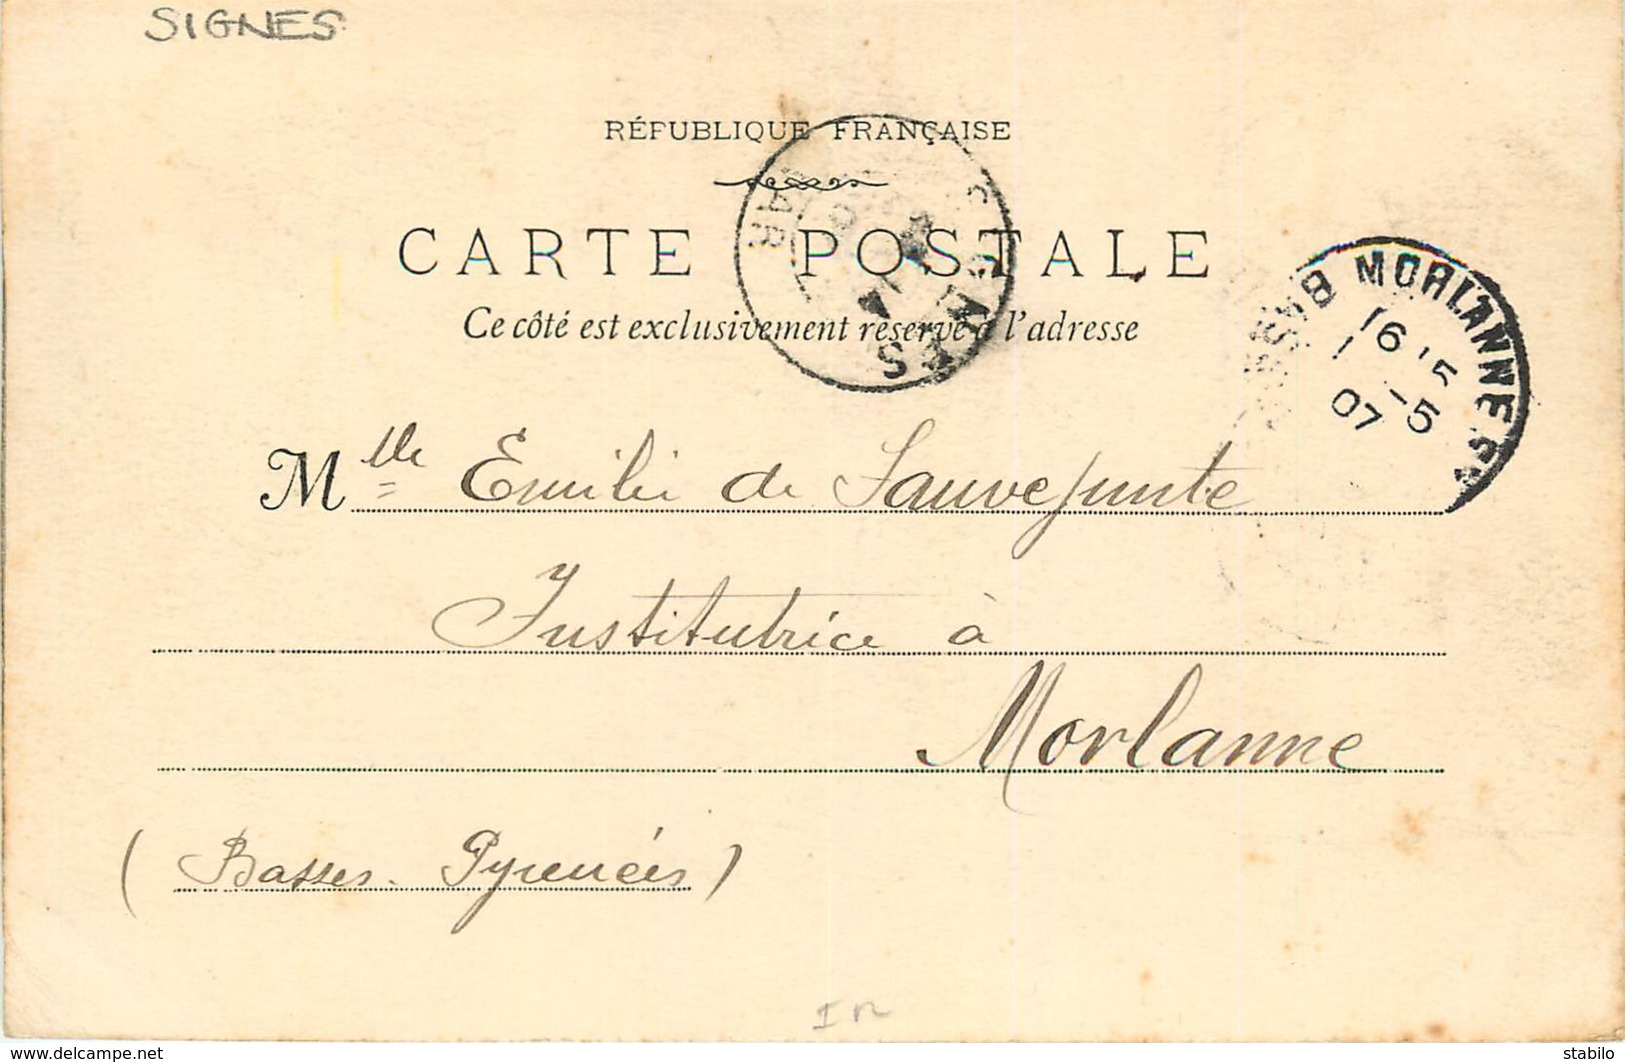 SIGNES
RÉPUBLIQUE FRANÇAISE
CARTE POSTALE
Ce côté est exclusivement réservé à l'adresse
SIGNES
VAR
MORLANNE
BASSES
16 15
1 -5
07
Mlle Emilie de Sauvejunte
Institutrice à
Morlanne
(Basses-Pyrénées)
www.delcampe.net
stabilo